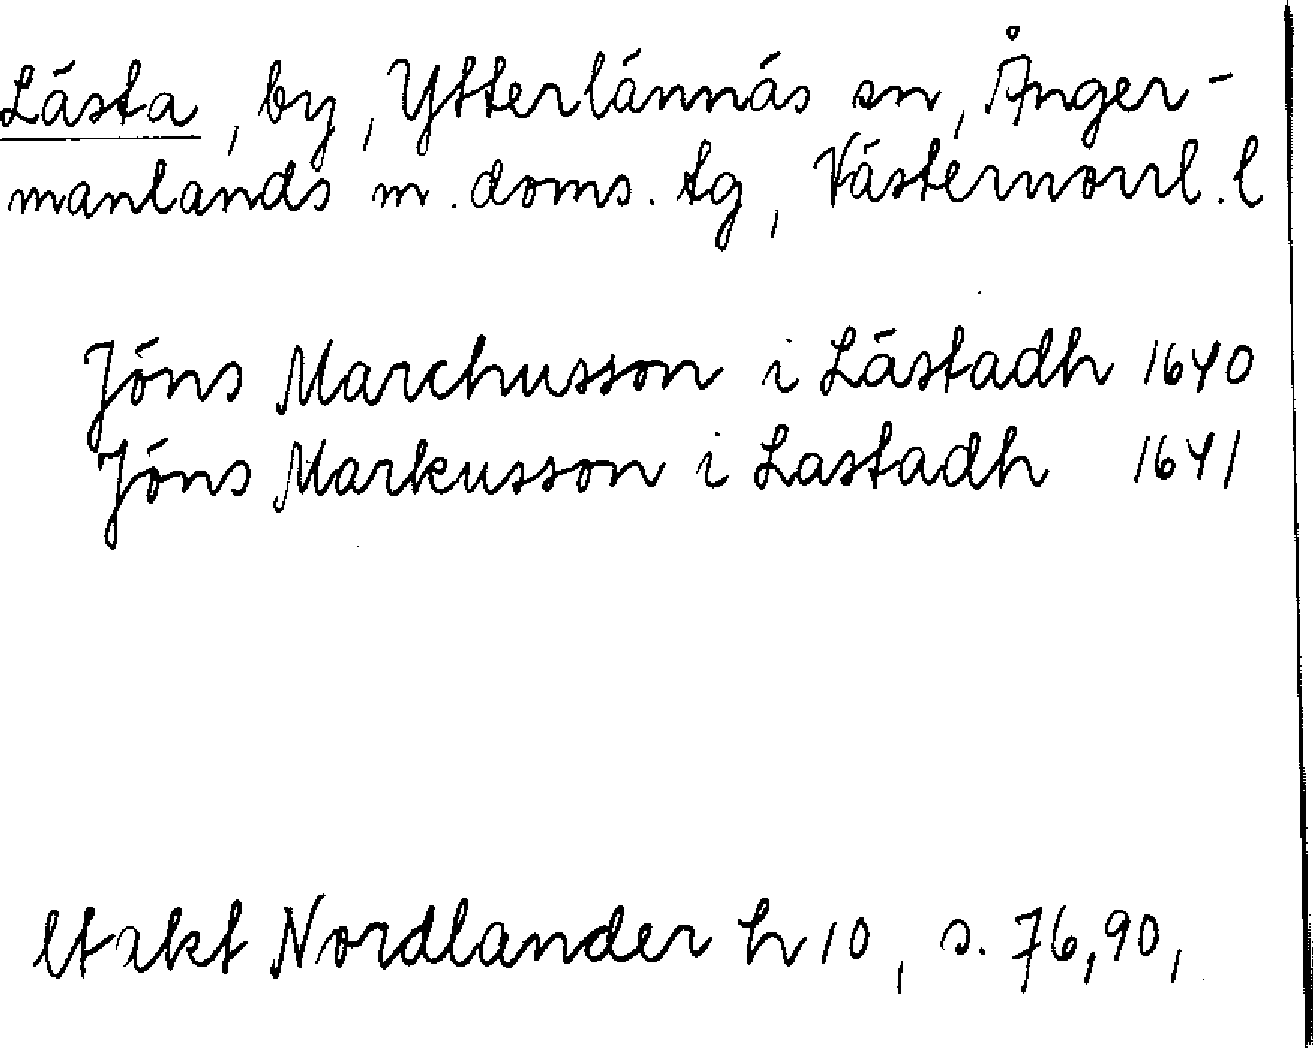 Lästa, by, Ytterlännäs sn, Ånger-
manlands m. doms. tg, Västernorrl. l
Jöns Marchusson i Lästadh 1640
Jöns Markusson i Lastadh 1641
Nordlander h 10, s. 76, 90,